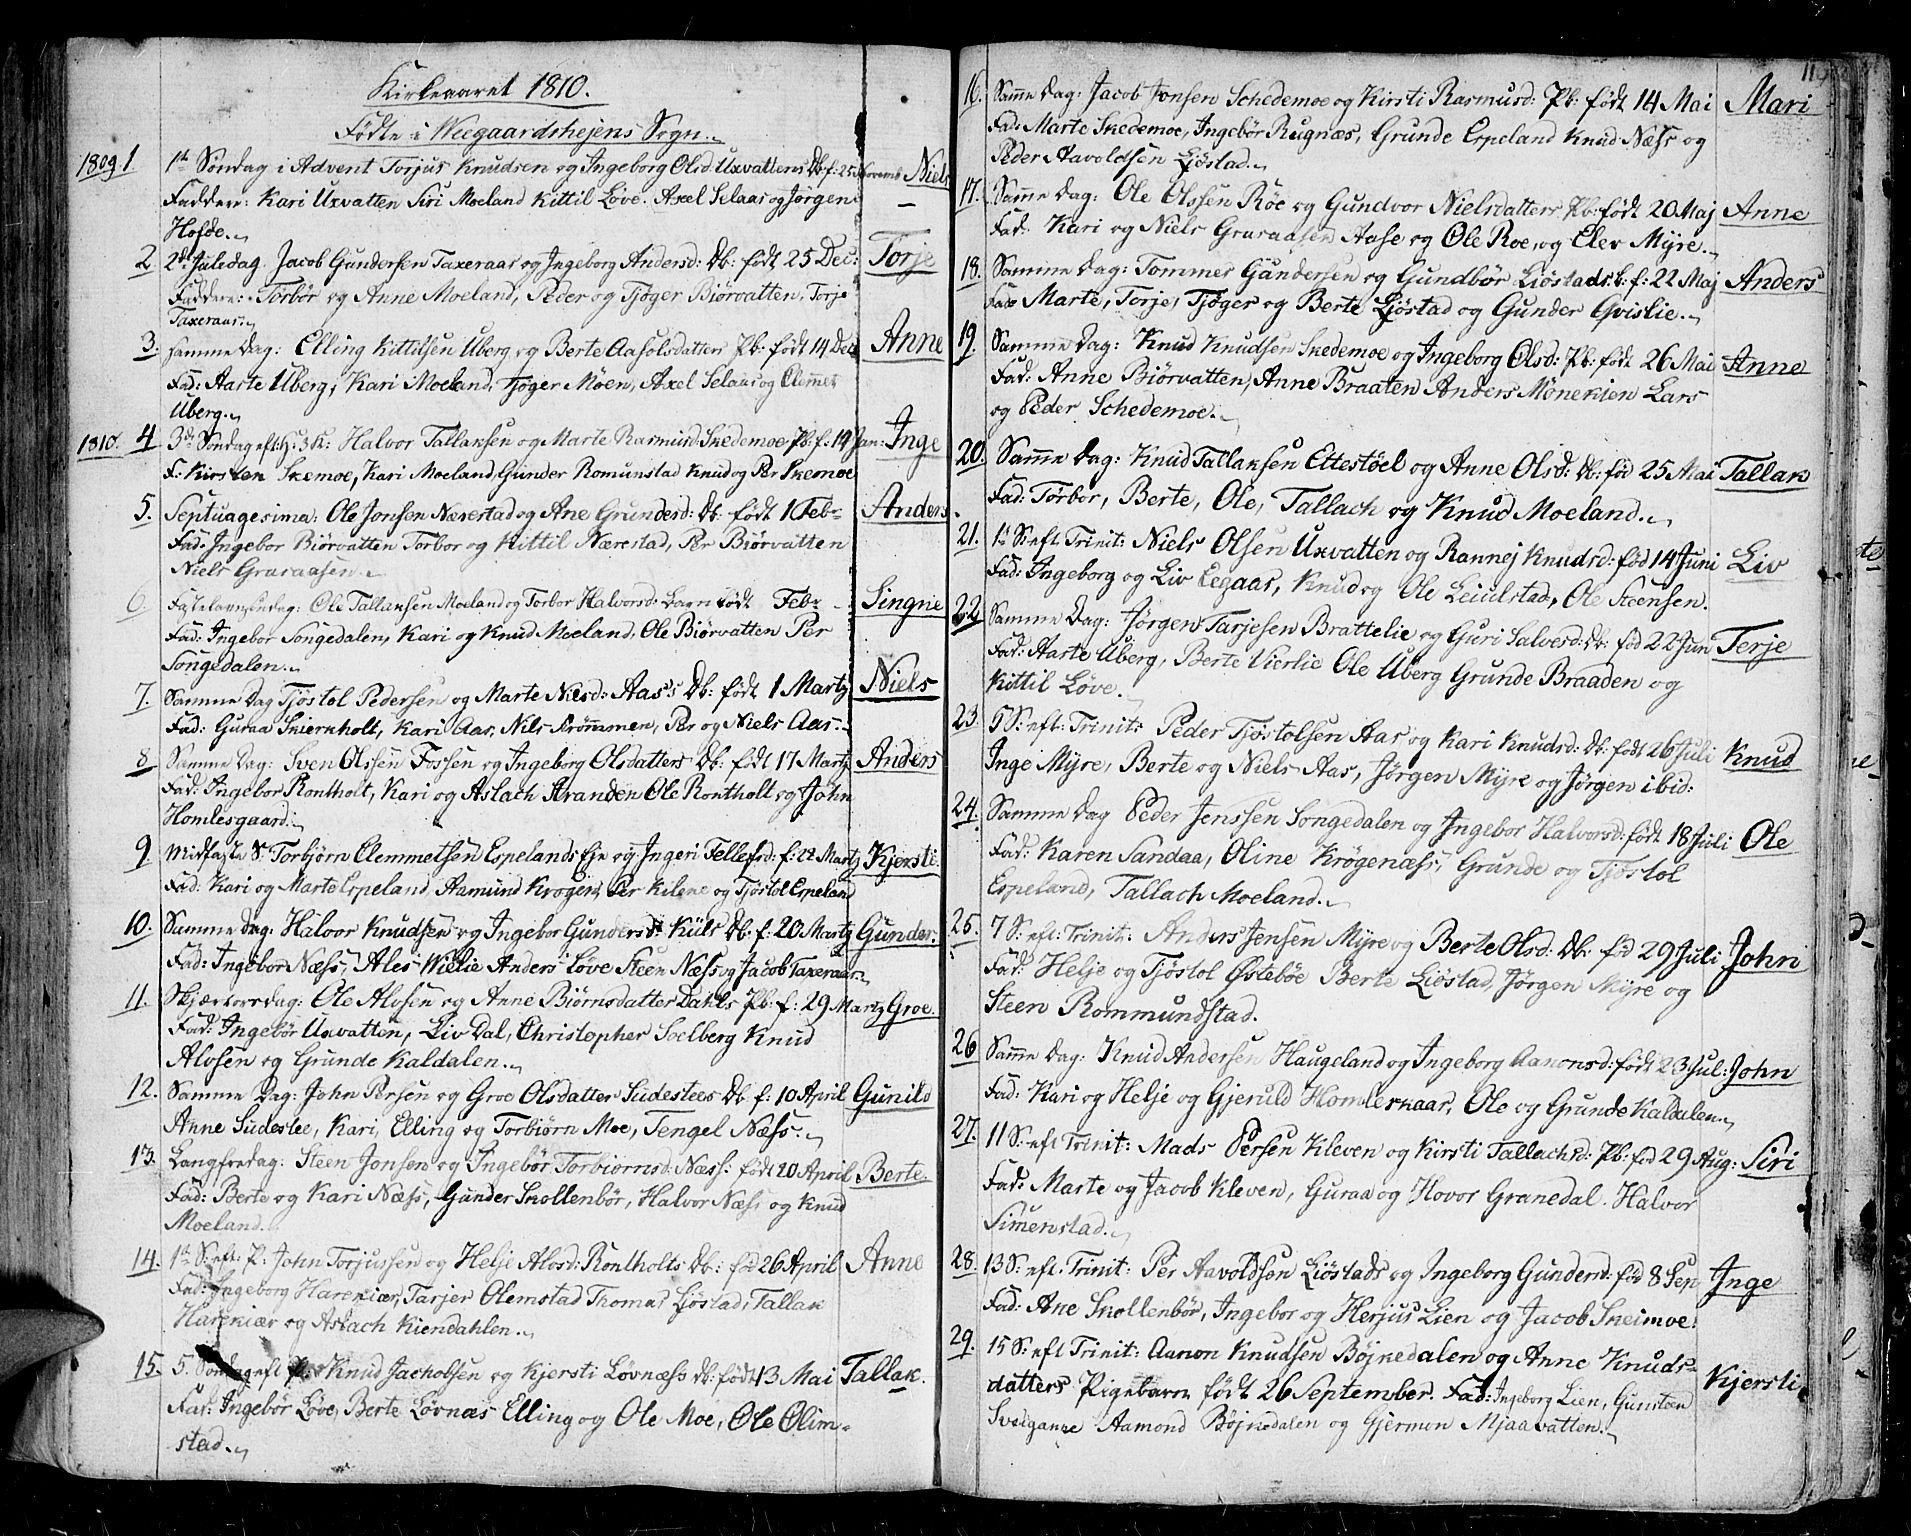 Kirkeaaret 1810.
Fødte i Weegaardshejens Sogn.
1809 1 1te Søndag i Advent Torjus Knudsen og Ingeborg Olsd: Uxvattens Db: f: 25 Novemb Niels
Faddere: Kari Uxvatten Siri Moeland Kittil Løve. Axel Selaas og Jørgen
Hofde.
2 2d: Juledag. Jacob Gundersen Taxeraas og Ingeborg Andersd: Db: født 25 Dec: Torje
Faddere: Torbør og Anne Moeland, Peder og Tjøger Biørvatten, Torje
Taxeraas.
3. samme Dag: Elling Kittilsen Uberg og Berte Aasolsdatter Pb: født 14 Dec Anne
Fad: Aarte Uberg, Kari Moeland, Tjøger Moen, Axel Selaas og Clemmet
Uberg.
1810. 4 3die Søndag eft: H. 3 K: Halvor Tallaksen og Marte Rasmusd: Skedemoe Pb: f: 19 Jan: Inge
F: Kirsten Skemoe, Kari Moeland, Gunder Romunstad Knud og Per Skemoe
5. Septuagesima: Ole Jonsen Nærestad og Ane Grundesd: Db: født 1 Febr Anders
Fad: Ingebor Biørvatten Torbor og Kittil Nærestad, Per Biørvatten
Niels Graraasen.
6. Fastelavnssøndag: Ole Tallaksen Moeland og Torbor Halvorsd: Barn født Febr Singne
Fad: Ingebor Songedalen, Kari og Knud Moeland, Ole Biørvatten Per
Songedalen.
7. Samme Dag Tjøstol Pedersen og Marte Nilsd: Aas's Db: født 1 Martz Niels
Fad: Guraa Skierkholt, Kari Aas, Nils Krømmen, Per og Niels Aas.
8 Samme Dag: Sven Olssen Fossen og Ingeborg Olsdatters Db: født 17 Martz Anders
Fad: Ingebor Rontholt, Kari og Aslach Stranden Ole Rontholt og John
Homlesgaard.
9 Midfaste S: Torbjørn Clemmetsen Espelands Eje og Ingeri Tellefsd: f: 22 Martz Kjersti
Fad: Kari og Marte Espeland, Aamund Krogen, Per Kilene og Tjøstol Espeland
10. Samme Dag: Halvor Knudsen og Ingebor Gundersd: Kiils Db: f: 20 Martz Gunder.
Fad: Ingebor Næss, Ales Wielie Anders Løve Steen Næss og Jacob Taxeraas.
11. Skjærtorsdag: Ole Alofsen og Anne Biørnsdatter Dahls Pb: f: 29 Martz Groe.
Fad: Ingebør Uxvatten, Liv Dal, Christopher Soelberg Knud
Alosen og Grunde Kaldalen.
12. Samme Dag: John Persen og Groe Olsdatter Sudeslees Db: f: 10 April Gunild
Anne Sudeslee, Kari, Elling og Torbiørn Moe, Tengel Næss.
13. Langfredag: Steen Jonsen og Ingebør Torbiørnsd: Næss: født 20 April Berte.
Fad: Berte og Kari Næss, Gunder Skollenbør, Halvor Næss og Knud
Moeland.
14. 1te S: eft: P: John Torjussen og Helje Alosd: Rontholts Db: fød 26 April Anne
Fad: Ingeborg Harekiær, Tarjer Olemstad Thomas Ljøstad, Tallak
Harekiær og Aslach Kiendahlen.
15. 5. Søndag eft Knud Jacholsen og Kjersti Løvnæss db: født 13 Mai Tallak.
Fad: Ingebør Løve, Berte Løvnæs Elling og Ole Moe, Ole Olim-
stad.
11
16. Samme Dag: Jacob Jonsen Schedemoe og Kirsti Rasmusd: Pb: født 14 Mai Mari
Fad: Marte Skedemoe, Ingebør Rugnæs, Grunde Espeland Knud Næss og
Peder Aavoldsen Ljøstad.
17. Samme Dag: Ole Olssen Røe og Gundvor Nielsdatters Pb: født 20 Maj Anne
Fad: Kari og Niels Graraasen Aase og Ole Roe, og Elev Myre.
18. Samme Dag: Tommes Gundersen og Gundbør Liøstads b. f: 22 Maj Anders
Fad Marte, Torje, Tjøger og Berte Ljøstad og Gunder Qvislie.
19. Samme Dag: Knud Knudsen Skedemoe og Ingeborg Olsd: Pb: født 26 Mai Anne
Fad: Anne Biørvatten, Anne Braaten Anders Mønekien Lars
og Peder Schedemoe.
20. Samme Dag: Knud Tallaksen Ettestøel og Anne Olsd: Db: fød 25 Mai Tallak
Fad: Torbor, Berte, Ole, Tallach og Knud Moeland.
21. 1te S: eft. Trinit: Niels Olsen Uxvatten og Rannej Knudsd: fød 14 Juni Liv
Fad: Ingeborg og Liv Legaar, Knud og Ole Leiulstad, Ole Steensen.
22. Samme Dag: Jørgen Tarjesen Brattelie og Guri Salvesd: Db: fød 22 Jun Terje
Fad: Aarte Uberg, Berte Vierlie Ole Uberg Grunde Braaden og
Kittil Løve.
23. 5 S: eft: Trinit: Peder Tjøstolsen Aas og Kari Knudsd: Db: født 26 Juli Knud
Inge Myre, Berte og Niels Aas, Jørgen Myre og Jørgen ibid:
24. Samme Dag Peder Jenssen Songedalen og Ingebor Halvorsd: født 18 Juli Ole
Fad: Karen Sandaa, Oline Krøgenæss, Grunde og Tjøstol
Espeland, Tallach Moeland.
25. 7 S: eft: Trinit: Anders Jensen Myre og Berte Olsd: Db: fød 29 Juli John
Fad: Helje og Tjøstol Østebøe Berte Ljøstad, Jørgen Myre og
Steen Rommundstad.
26 Samme Dag: Knud Andersen Haugeland og Ingeborg Aanonsd: født 23 Jul: John
Fad: Kari og Helje og Gjeruld Homleskaar, Ole og Grunde Kaldalen.
27. 11 S: eft Trinit: Mads Persen Kleven og Kirsti Tallachsd: Pb: fød 29 Aug: Siri
Fad: Marte og Jacob Kleven, Guraa og Hovor Granedal. Halvor
Simenstad.
28. 13 S: eft. Trinit: Per Aavoldsen Liøstads og Ingeborg Gundersd: fød 8 Sep Inge
Fad: Ane Skollenbør, Ingebor og Herjus Lien og Jacob Skeimoe.
29. 15 S: eft Trinit: Aanon Knudsen Bøjkedalen og Anne Knuds-
datters Pigebarn født 26 September. Fad: Ingeborg Lien, Gunsteen Kjersti
Sveiganne Aamond Bøjkedalen og Gjermon Mjaavatten.